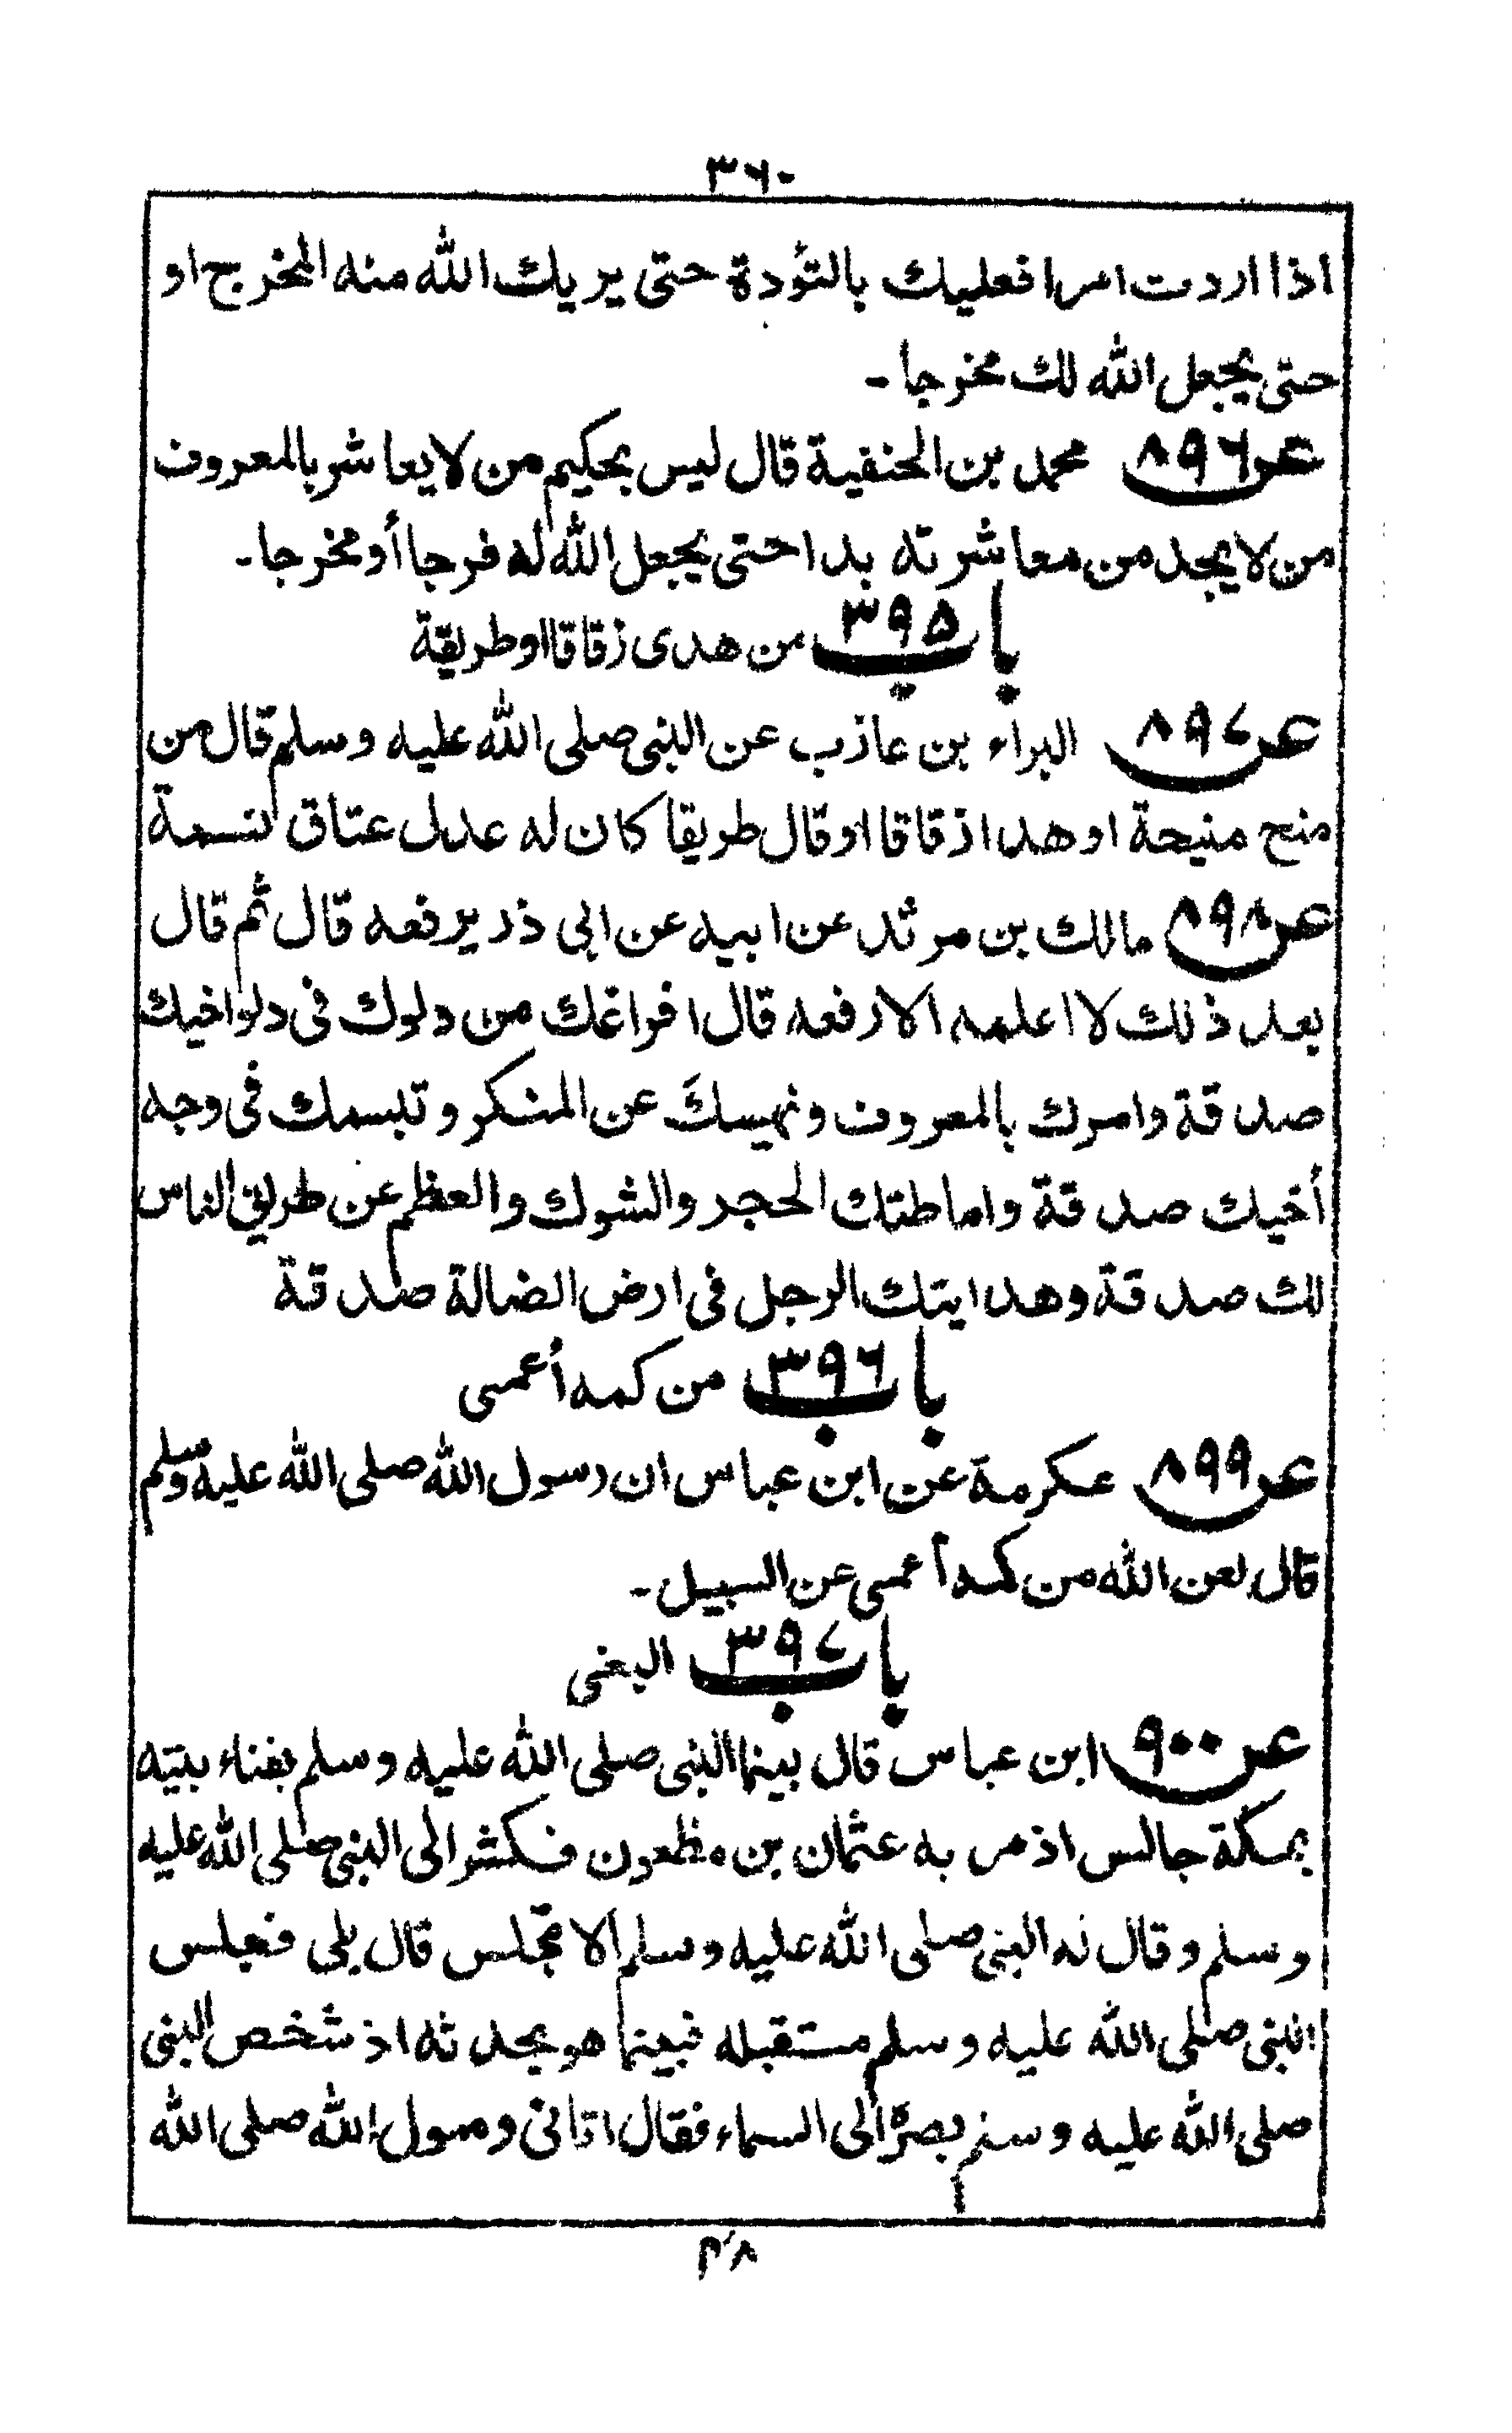 ٣٦٠
اذا اردت امرا فعليك بالتؤدة حتى يريك الله منه المخرج او
حتى يجعل الله لك مخرجا -
عن ٨٩٦ محمد بن الحنفية قال ليس بحكيم من لا يعاشر بالمعروف
من لا يجد من معاشرته بدا حتى يجعل الله له فرجا أو مخرجا -
باب ٣٩٥ من هدى زقاقا او طريقة
عن ٨٩٧ البراء بن عازب عن النبى صلى الله عليه وسلم قال من
منح منيحة او هدا زقاقا او قال طريقا كان له عدل عتاق نسمة
عن ٨٩٨ مالك بن مرثد عن ابيه عن ابى ذر يرفعه قال ثم قال
بعد ذلك لا اعلمه الا رفعه قال افراغك من دلوك فى دلو اخيك
صدقة وامرك بالمعروف ونهيك عن المنكر وتبسمك فى وجه
أخيك صدقة واماطتك الحجر والشوك والعظم عن طريق الناس
لك صدقة وهدايتك الرجل فى ارض الضالة صدقة
باب ٣٩٦ من كمه أعمى
عن ٨٩٩ عكرمة عن ابن عباس ان رسول الله صلى الله عليه وسلم
قال لعن الله من كمه أعمى عن السبيل -
باب ٣٩٧ البغى
عن ٩٠٠ ابن عباس قال بينما النبى صلى الله عليه وسلم بفناء بيته
بمكة جالس اذ مر به عثمان بن مظعون فكشر الى النبى صلى الله عليه
وسلم وقال له النبى صلى الله عليه وسلم ألا تجلس قال بلى فجلس
النبى صلى الله عليه وسلم مستقبله فبينما هو يحدثه اذ شخص النبى
صلى الله عليه وسلم بصره الى السماء فقال اتانى رسول الله صلى الله